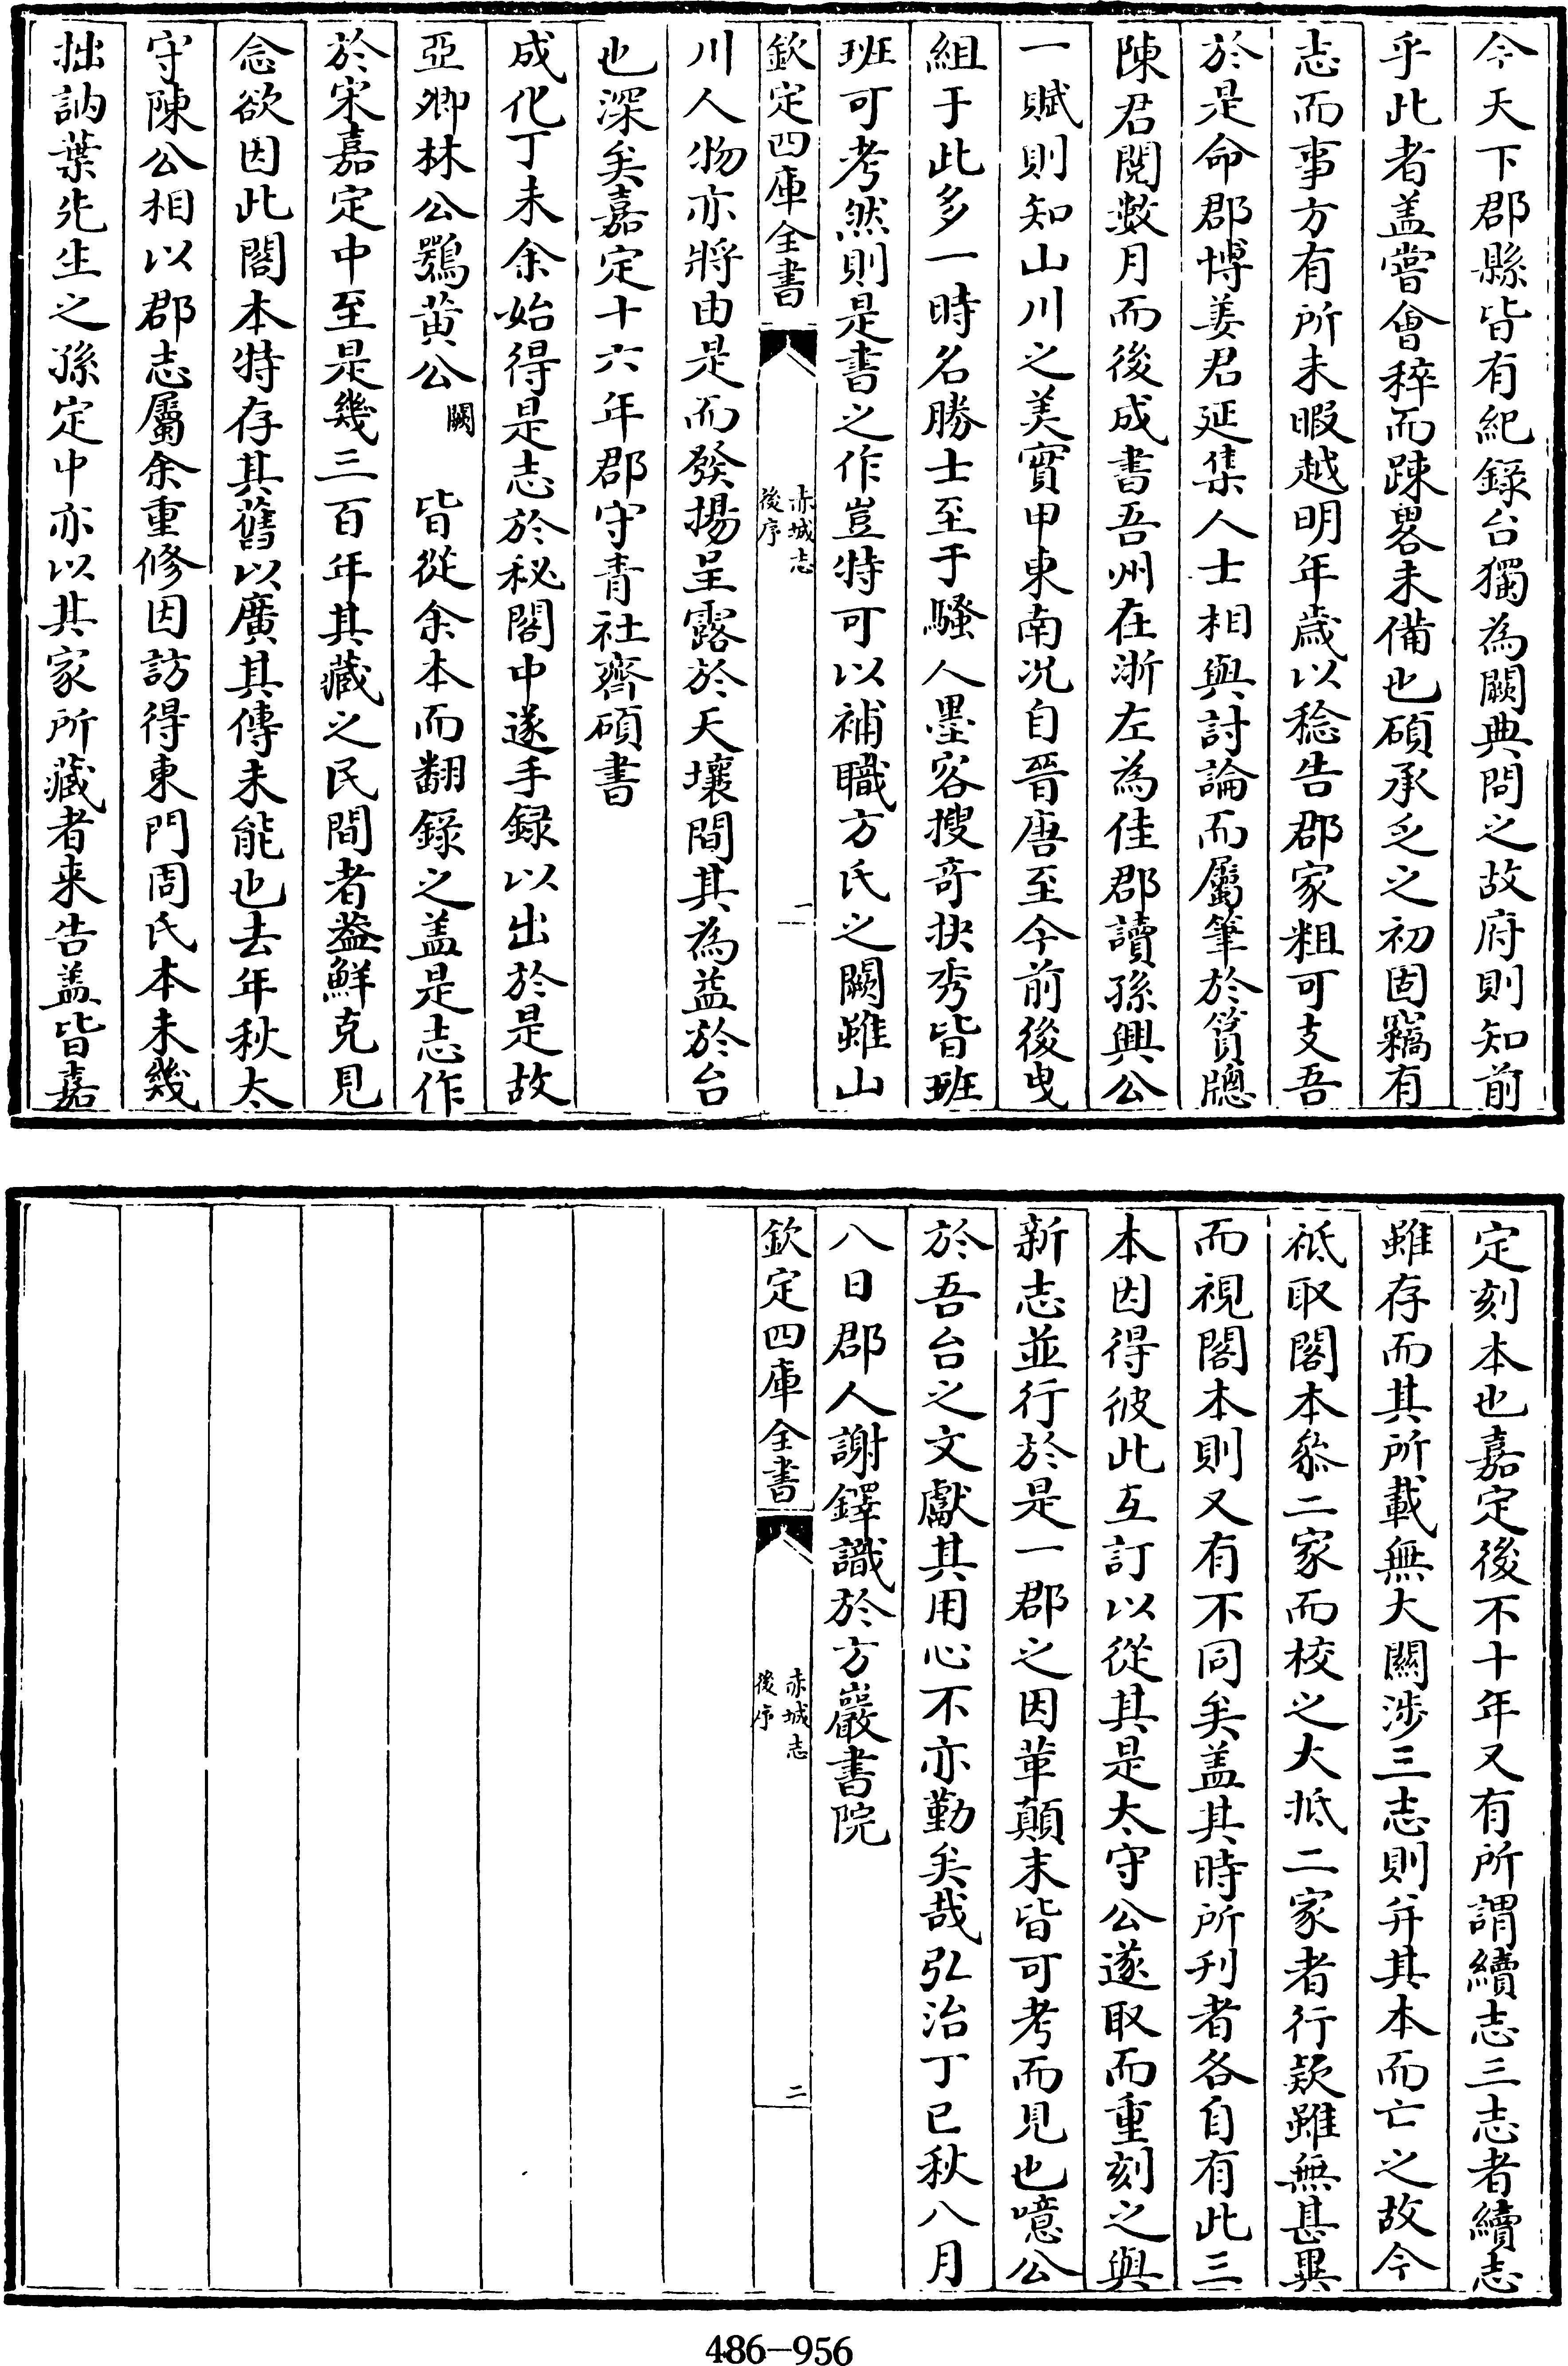 今天下郡縣皆有紀錄台獨為闕典問之故府則知前
乎此者盖嘗會稡而踈畧未備也碩承乏之初固竊有
志而事方有所未暇越明年歲以稔告郡家粗可支吾
於是命郡博姜君延集人士相與討論而屬筆於篔牕
陳君閱數月而後成書吾州在浙左為佳郡讀孫興公
一賦則知山川之美實甲東南况自晉唐至今前後曳
組于此多一時名勝士至于騷人墨客搜竒抉秀皆班
班可考然則是書之作豈特可以補職方氏之闕雖山
欽定四庫全書
赤城志
後序
一
川人物亦將由是而發揚呈露於天壤間其為益於台
也深矣嘉定十六年郡守青社齊碩書
成化丁未余始得是志於秘閣中遂手録以出於是故
亞卿林公鶚黄公闕 皆從余本而翻錄之盖是志作
於宋嘉定中至是幾三百年其藏之民間者葢鮮克見
念欲因此閣本特存其舊以廣其傳未能也去年秋太
守陳公相以郡志屬余重修因訪得東門周氏本未幾
拙訥葉先生之孫定中亦以其家所藏者来告盖皆嘉
定刻本也嘉定後不十年又有所謂續志三志者續志
雖存而其所載無大關涉三志則并其本而亡之故今
祗取閣本叅二家而校之大抵二家者行欵雖無甚異
而視閣本則又有不同矣盖其時所刋者各自有此三
本因得彼此互訂以從其是太守公遂取而重刻之與
新志並行於是一郡之因革顛末皆可考而見也噫公
於吾台之文獻其用心不亦勤矣哉弘治丁巳秋八月
八日郡人謝鐸識於方巖書院
欽定四庫全書
赤城志
後序
二
486-956